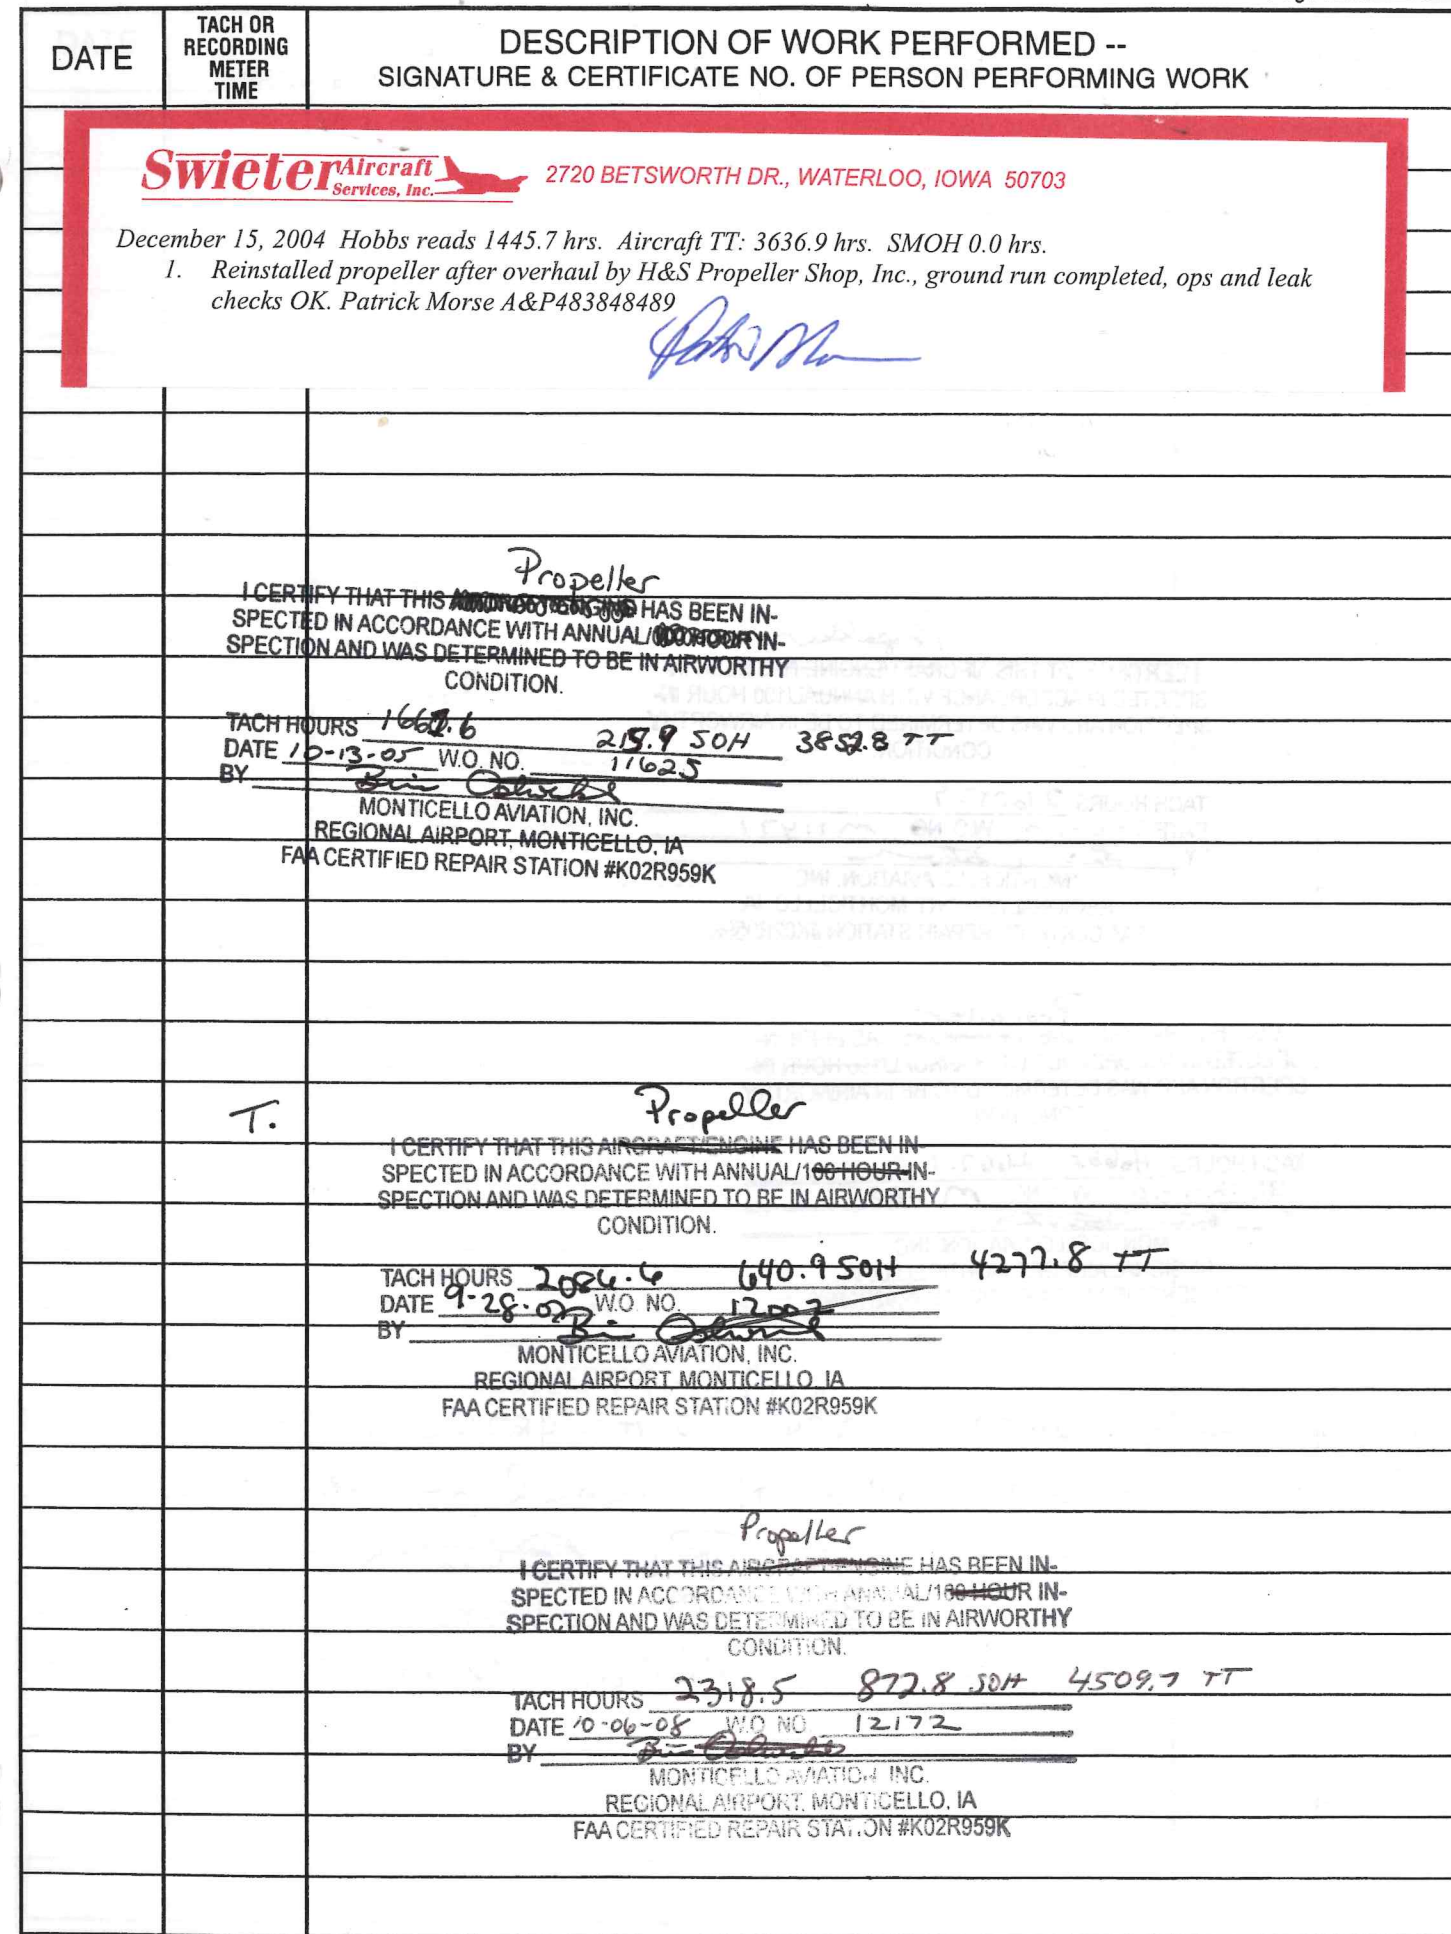 DATE
TACH OR
RECORDING
METER
TIME
DESCRIPTION OF WORK PERFORMED --
SIGNATURE & CERTIFICATE NO. OF PERSON PERFORMING WORK
Swieter Aircraft Services, Inc. 2720 BETSWORTH DR., WATERLOO, IOWA 50703
December 15, 2004 Hobbs reads 1445.7 hrs. Aircraft TT: 3636.9 hrs. SMOH 0.0 hrs.
1. Reinstalled propeller after overhaul by H&S Propeller Shop, Inc., ground run completed, ops and leak
checks OK. Patrick Morse A&P483848489
Propeller
I CERTIFY THAT THIS HAS BEEN IN-
SPECTED IN ACCORDANCE WITH ANNUAL/100 HOUR IN-
SPECTION AND WAS DETERMINED TO BE IN AIRWORTHY
CONDITION.
TACH HOURS SOH TT
DATE 10-13-05 W.O. NO. 11625
BY
MONTICELLO AVIATION, INC.
REGIONAL AIRPORT, MONTICELLO, IA
FAA CERTIFIED REPAIR STATION #K02R959K
T. Propeller
I CERTIFY THAT THIS AIRCRAFT/ENGINE HAS BEEN IN-
SPECTED IN ACCORDANCE WITH ANNUAL/100 HOUR IN-
SPECTION AND WAS DETERMINED TO BE IN AIRWORTHY
CONDITION.
TACH HOURS 2086.6 640.9 SOH 4277.8 TT
DATE W.O. NO. 12007
BY
MONTICELLO AVIATION, INC.
REGIONAL AIRPORT, MONTICELLO, IA
FAA CERTIFIED REPAIR STATION #K02R959K
Propeller
I CERTIFY THAT THIS AIRCRAFT/ENGINE HAS BEEN IN-
SPECTED IN ACCORDANCE WITH ANNUAL/100 HOUR IN-
SPECTION AND WAS DETERMINED TO BE IN AIRWORTHY
CONDITION.
TACH HOURS 2318.5 872.8 SOH 4509.7 TT
DATE 10-06-08 W.O. NO. 12172
BY
MONTICELLO AVIATION, INC.
REGIONAL AIRPORT, MONTICELLO, IA
FAA CERTIFIED REPAIR STATION #K02R959K